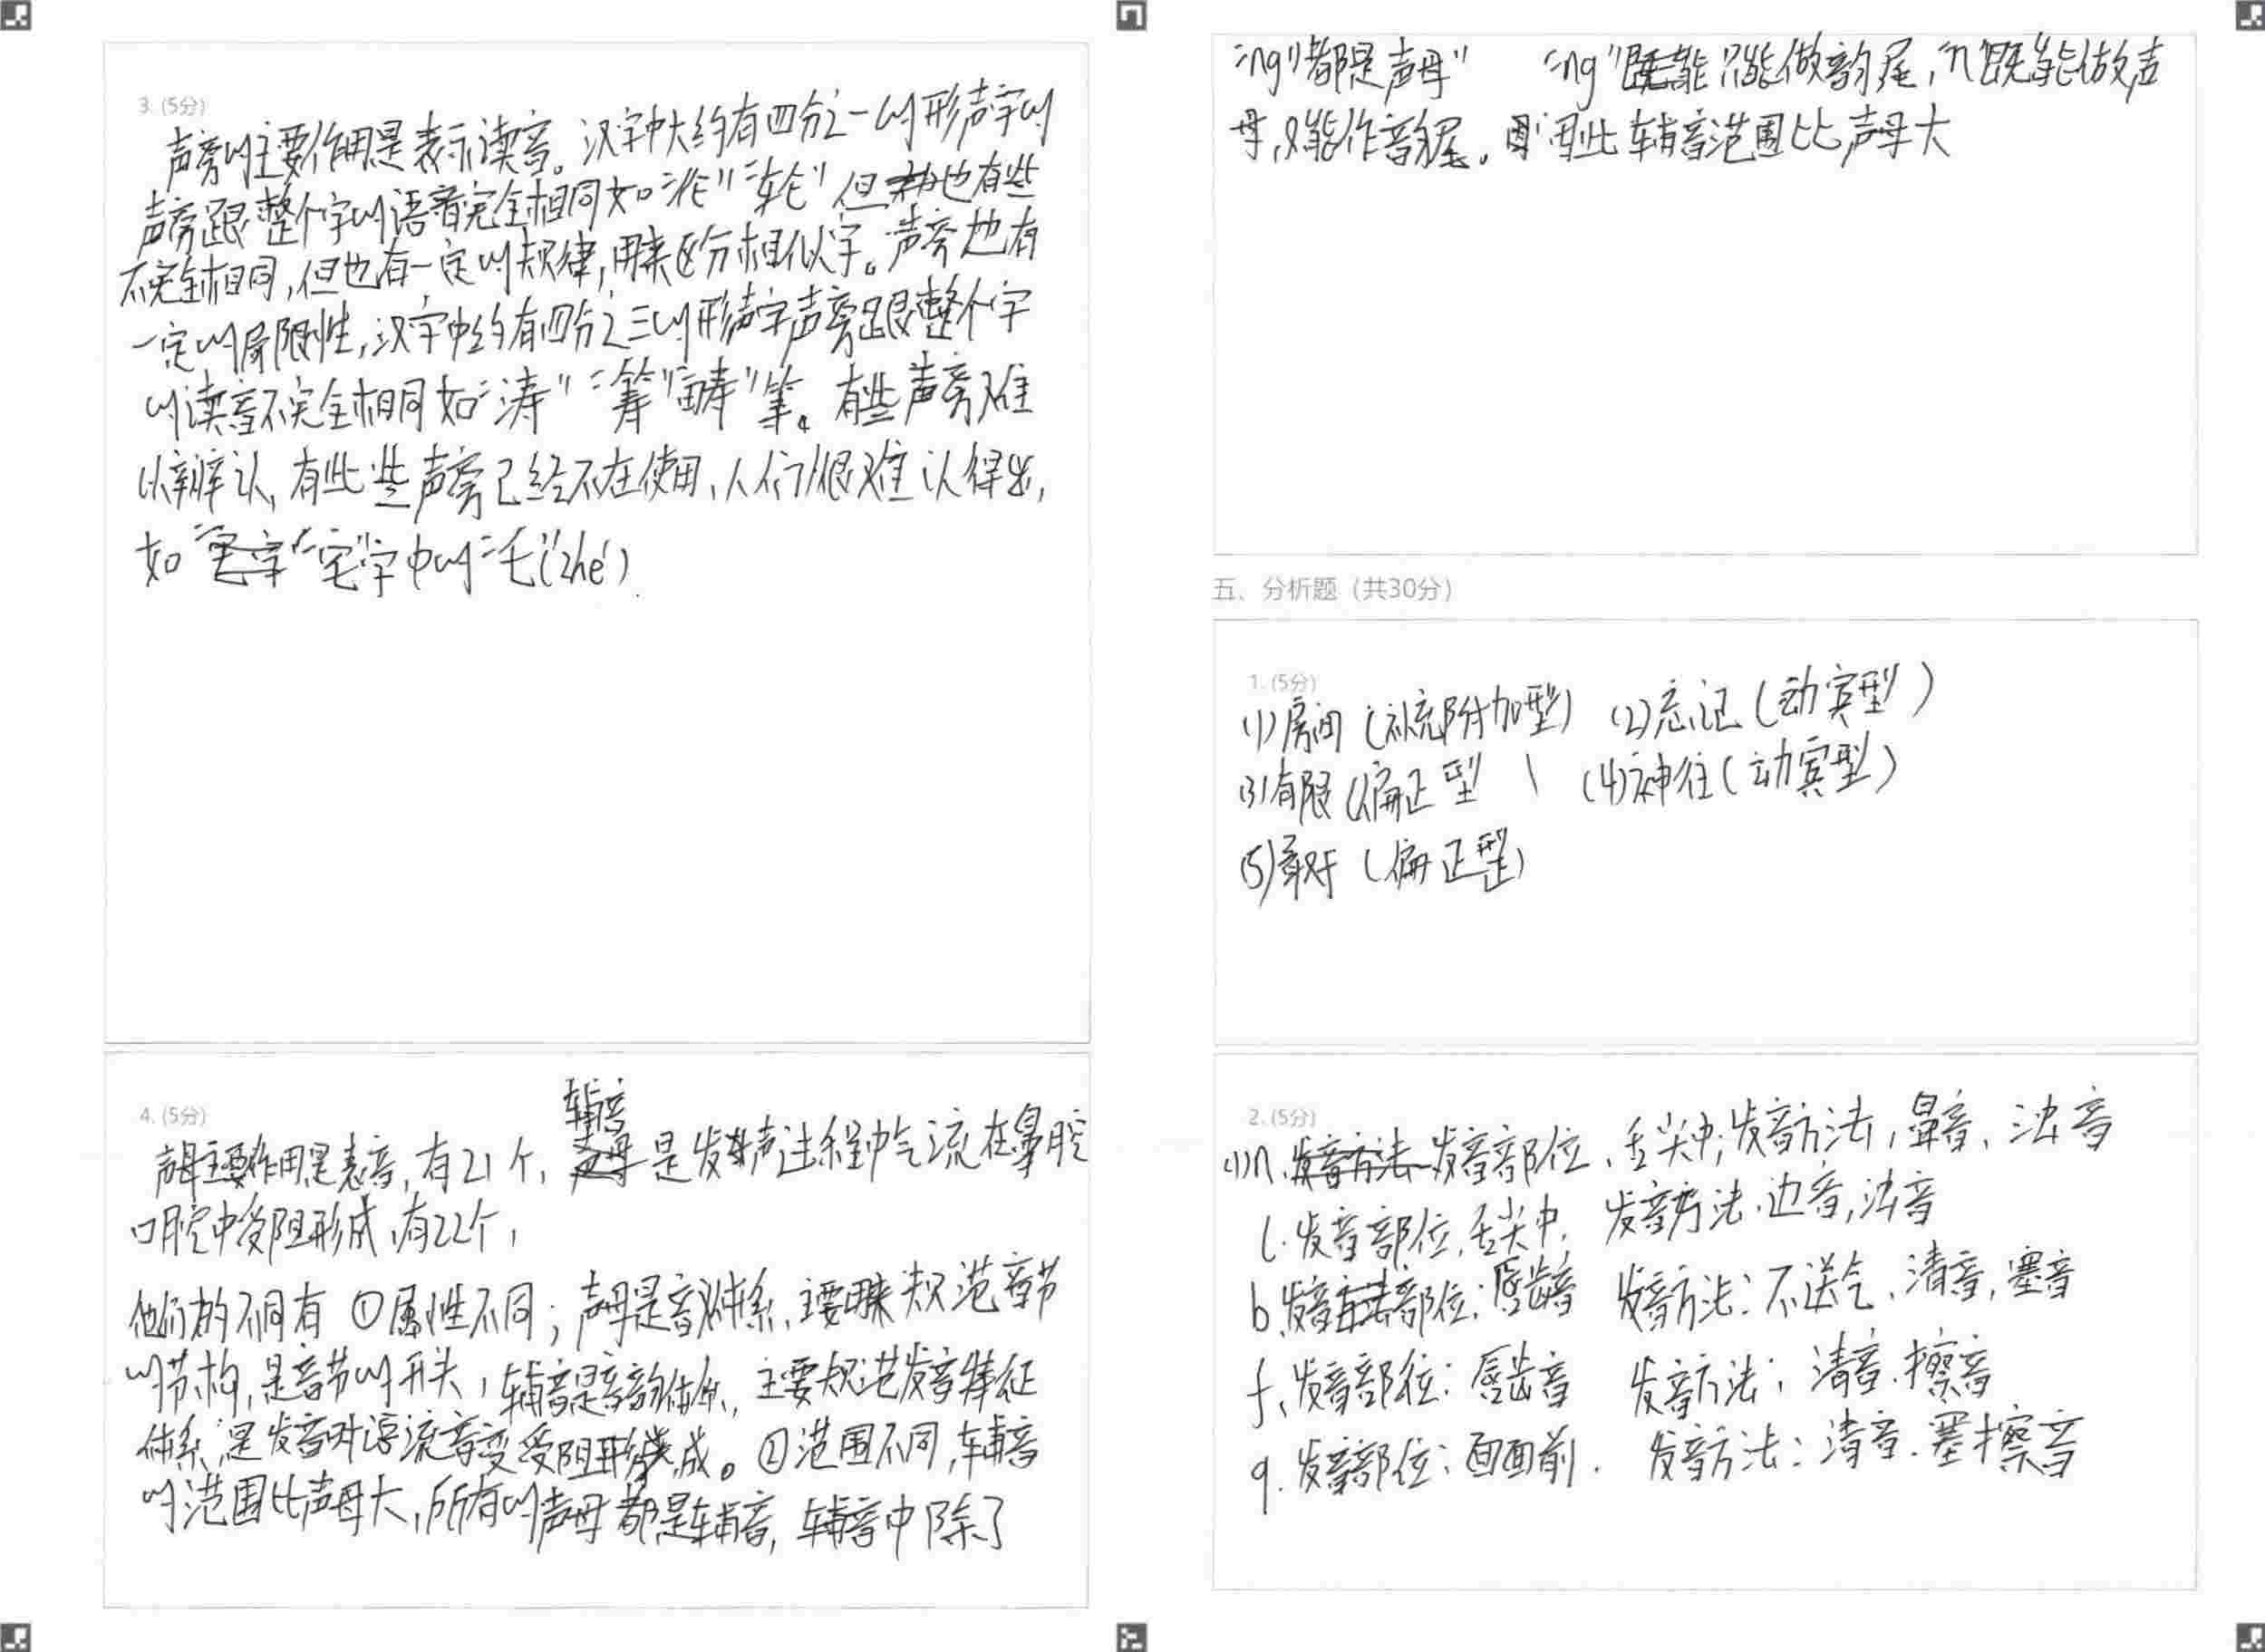 3. (5分)
声旁的主要作用是表示读音。汉字中大约有四分之一的形声字的
声旁跟整个字的语音完全相同如“沦”“轮”但也有些
不完全相同,但也有一定的规律,用来区分相似字。声旁也有
一定的局限性,汉字中约有四分之三的形声字声旁跟整个字
的读音不完全相同如“涛”“筹”“畴”等。有些声旁难
以辨认,有些声旁已经不在使用,人们很难认得出,
如“宅”字中的“乇”(zhé)
4. (5分)
声母主要作用是表音,有21个,辅音是发声过程中气流在鼻腔
口腔中受阻形成,有22个,
他们的不同有 ①属性不同;声母是音体系,主要用来规范音节
的节构,是音节的开头,辅音是音韵体系,主要规范发音特征
体系,是发音时受阻形成。②范围不同,辅音
的范围比声母大,所有的声母都是辅音,辅音中除了
“ng”都是声母” “ng”只能做韵尾,“n”既能做声
母,又能作韵尾。因此辅音范围比声母大
五、分析题(共30分)
1. (5分)
(1)房间(补充附加型) (2)忘记(动宾型)
(3)有限(偏正型) (4)神往(动宾型)
(5)(偏正型)
2. (5分)
(1)n.发音部位、舌尖中;发音方法,鼻音、浊音
l.发音部位.舌尖中. 发音方法.边音,浊音
b.发音部位:唇齿音 发音方法:不送气、清音,塞音
f、发音部位:唇齿音 发音方法;清音.擦音
q.发音部位:面面前. 发音方法:清音.塞擦音